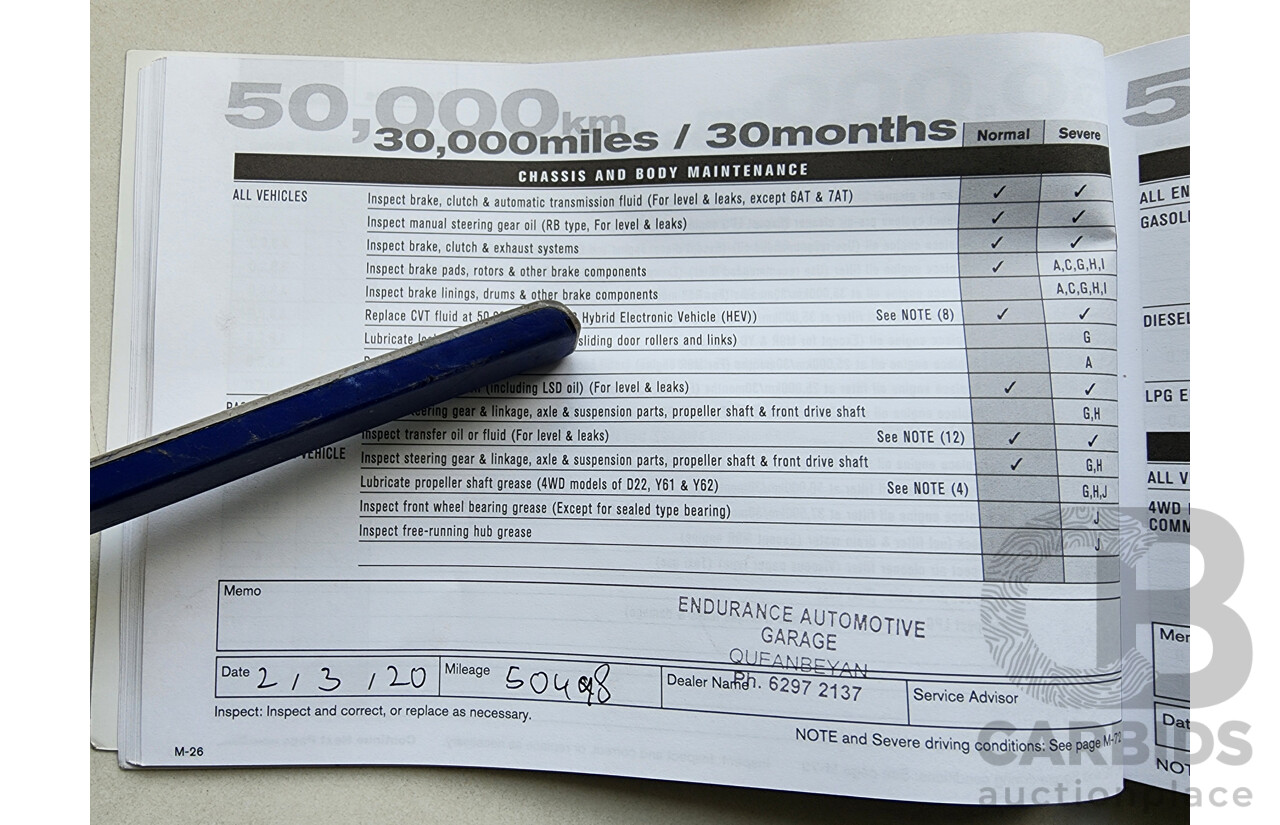 50,000km
30,000miles / 30months Normal Severe
CHASSIS AND BODY MAINTENANCE
ALL VEHICLES Inspect brake, clutch & automatic transmission fluid (For level & leaks, except 6AT & 7AT) ✓ ✓
Inspect manual steering gear oil (RB type, For level & leaks) ✓ ✓
Inspect brake, clutch & exhaust systems ✓ ✓
Inspect brake pads, rotors & other brake components ✓ A,C,G,H,I
Inspect brake linings, drums & other brake components A,C,G,H,I
Replace CVT fluid at Hybrid Electronic Vehicle (HEV)) See NOTE (8) ✓ ✓
Lubricate sliding door rollers and links) G
A
(including LSD oil) (For level & leaks) ✓ ✓
gear & linkage, axle & suspension parts, propeller shaft & front drive shaft G,H
Inspect transfer oil or fluid (For level & leaks) See NOTE (12) ✓ ✓
Inspect steering gear & linkage, axle & suspension parts, propeller shaft & front drive shaft ✓ G,H
Lubricate propeller shaft grease (4WD models of D22, Y61 & Y62) See NOTE (4) G,H,J
Inspect front wheel bearing grease (Except for sealed type bearing) J
Inspect free-running hub grease J
Memo
ENDURANCE AUTOMOTIVE
GARAGE
QUEANBEYAN
Ph. 6297 2137
Date 2 / 3 / 20 Mileage 50498 Dealer Name Service Advisor
Inspect: Inspect and correct, or replace as necessary.
NOTE and Severe driving conditions: See page
M-26
5
ALL EN
GASOL
DIESEL
LPG E
ALL V
4WD
COMM
Mer
Dat
NOT
CB
CARBIDS
auctionplace